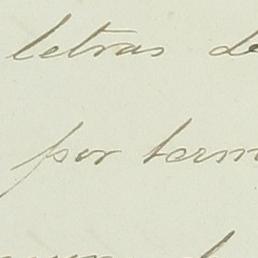 letras de
por term